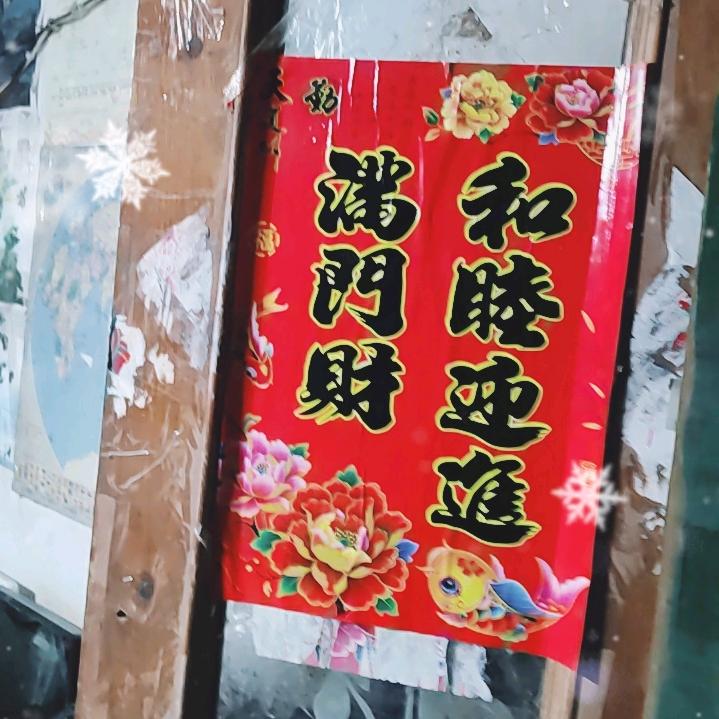 和睦迎進
滿門財
勤